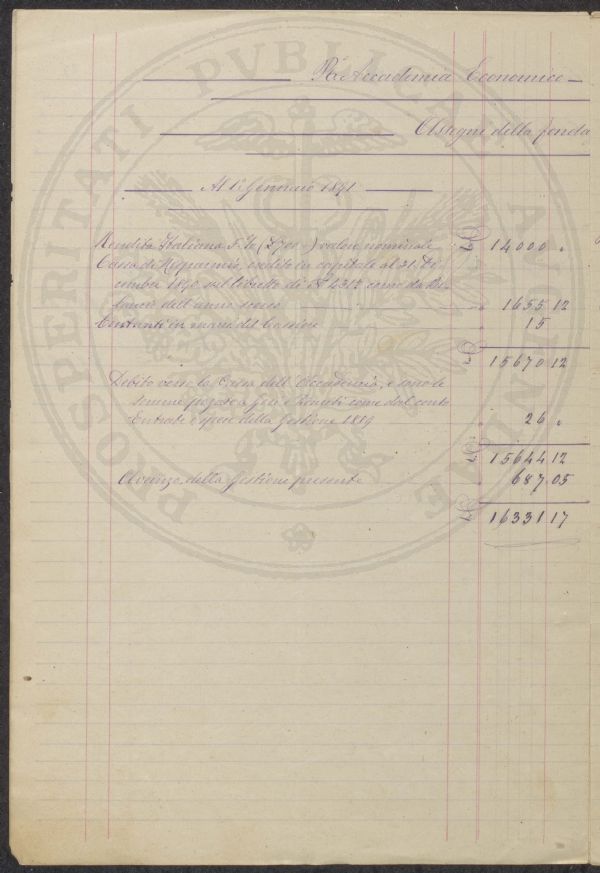 R. Accademia Economico-
Assegni della fonda
Al 1. Gennaio 1891
Rendita Italiana 5 % (£ 700 -) valore nominale £ 14000 "
Cassa di Risparmio, credito in capitale al 31. Di-
cembre 1890 sul libretto di N° 4315 come da Bi-
lancio dell'anno scorso " 1655 12
Contanti in mano del Cassiere " 15
£ 15670 12
Debito verso la Cassa dell'Accademia, e sono le
somme pagate a come dal conto
Entrate e spese della Gestione 1889 " 26 "
£ 15644 12
Avanzo della Gestione presente " 687 05
£ 16331 17
PROSPERITATI PVBLICAE AVGENDAE